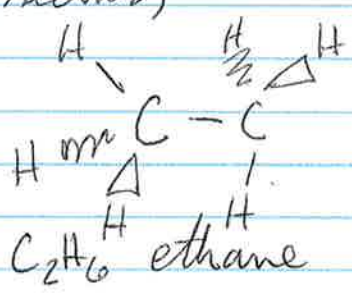 H H H
C - C
H
H H
C₂H₆ ethane